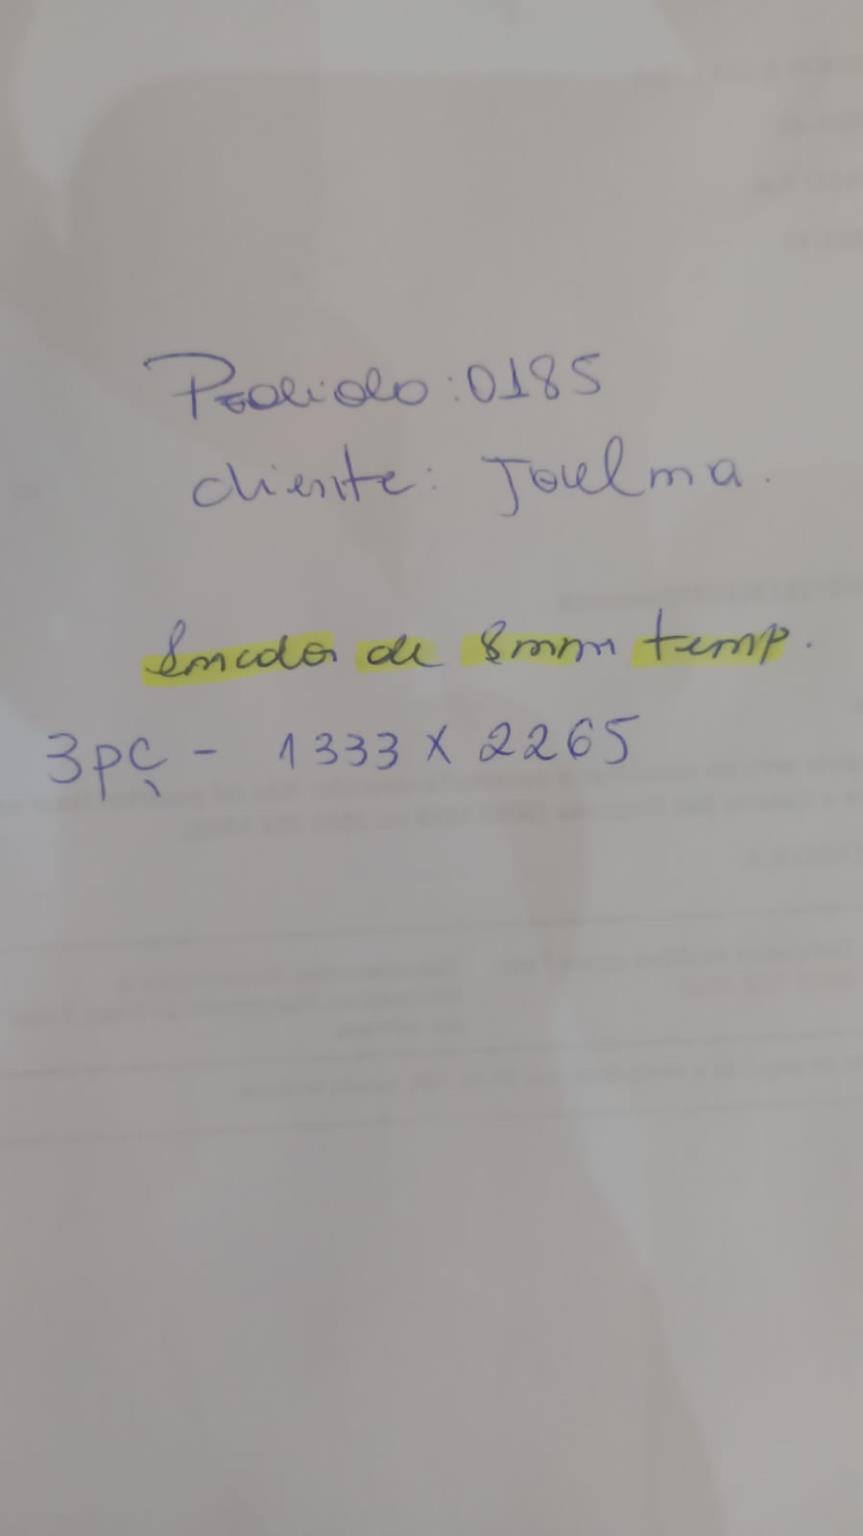 Pedido: 0185
cliente: Joelma.
de 8mm temp.
3pç - 1333 X 2265